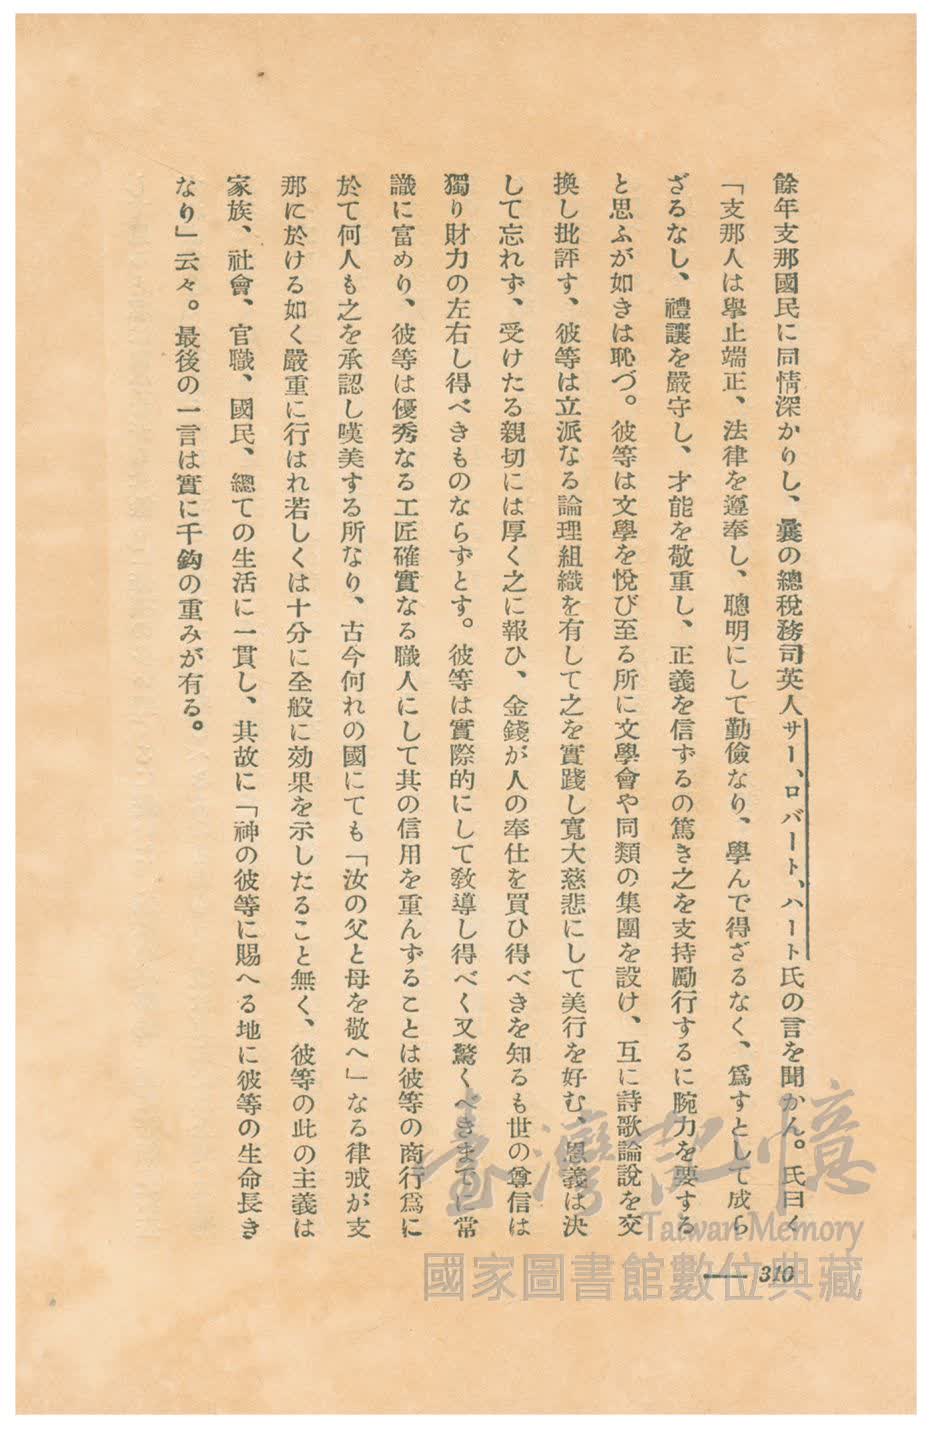 餘年支那國民に同情深かりし、曩の總稅務司英人サー、ロバート、ハート氏の言を聞かん。氏曰く
「支那人は擧止端正、法律を遵奉し、聰明にして勤儉なり、學んで得ざるなく、爲すとして成ら
ざるなし、禮讓を嚴守し、才能を敬重し、正義を信ずるの篤き之を支持勵行するに腕力を要する
と思ふが如きは恥づ。彼等は文學を悅び至る所に文學會や同類の集團を設け、互に詩歌論說を交
換し批評す、彼等は立派なる論理組織を有して之を實踐し寬大慈悲にして美行を好む、恩義は決
して忘れず、受けたる親切には厚く之に報ひ、金錢が人の奉仕を買ひ得べきを知るも世の尊信は
獨り財力の左右し得べきものならずとす。彼等は實際的にして敎導し得べく又驚くべきまでに常
識に富めり、彼等は優秀なる工匠確實なる職人にして其の信用を重んずることは彼等の商行爲に
於て何人も之を承認し嘆美する所なり、古今何れの國にても「汝の父と母を敬へ」なる律戒が支
那に於ける如く嚴重に行はれ若しくは十分に全般に効果を示したること無く、彼等の此の主義は
家族、社會、官職、國民、總ての生活に一貫し、其故に「神の彼等に賜へる地に彼等の生命長き
なり」云々。最後の一言は實に千鈞の重みが有る。
310
臺灣記憶
Taiwan Memory
國家圖書館數位典藏